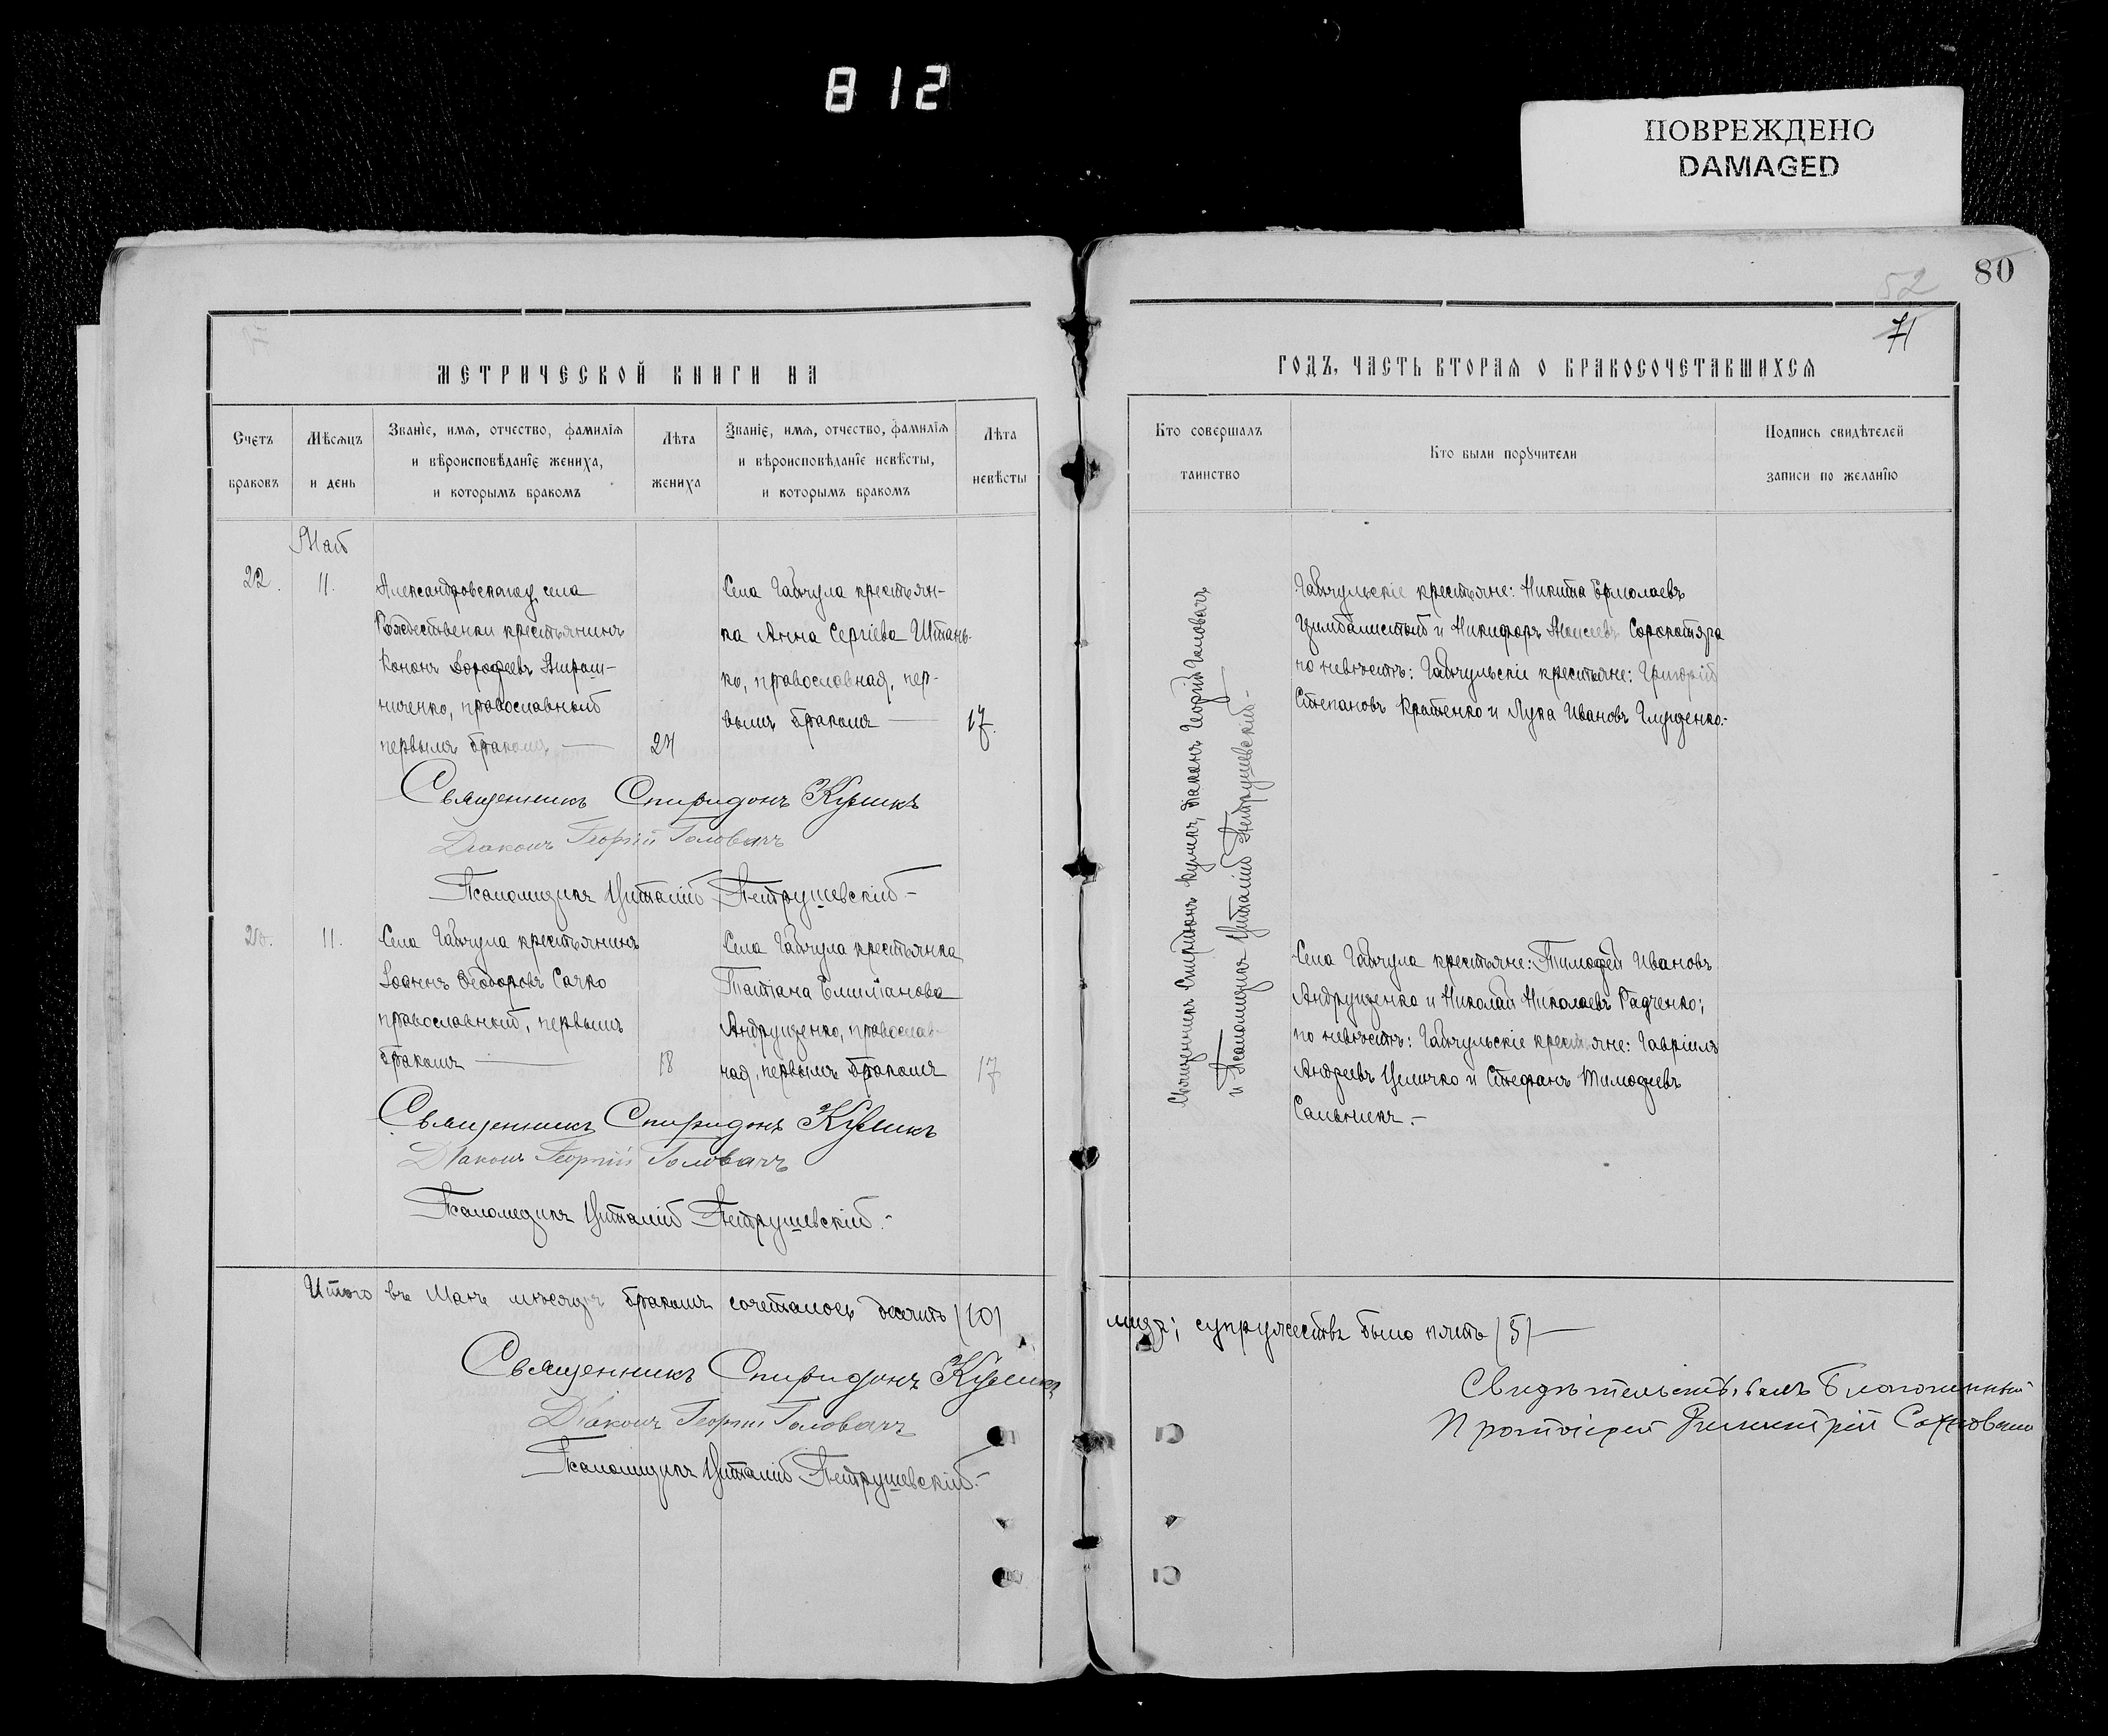 812
ПОВРЕЖДЕНО
DAMAGED
80
52
71
МЕТРИЧЕСКОЙ КНИГИ НА
ГОДЪ, ЧАСТЬ ВТОРАЯ О БРАКОСОЧЕТАВШИХСЯ
Счетъ браковъ
Мѣсяцъ и день
Званіе, имя, отчество, фамилія
и вѣроисповѣданіе жениха,
и которымъ бракомъ
Лѣта жениха
Званіе, имя, отчество, фамилія
и вѣроисповѣданіе невѣсты,
и которымъ бракомъ
Лѣта невѣсты
Кто совершалъ
таинство
Кто были поручители
Подпись свидѣтелей
записи по желанію
Май
22.
11.
Александровскаго у. села
Рождественки крестьянинъ
Кононъ Дорофеевъ
ниченко, православный
первымъ бракомъ
24
Села Гайчула крестьян-
ка Анна Сергіева Штань-
ко, православная, пер-
вымъ бракомъ
17.
Священникъ Спиридонъ Куликъ
Діаконъ Георгій Головачъ
Псаломщикъ Виталій Петрушевскій.-
11.
Села Гайчула крестьянинъ
Іоаннъ Ѳеодоровъ Сачко
православный, первымъ
бракомъ
18
Села Гайчула крестьянка
Татіана Емиліанова
Андрущенко, православ-
ная, первымъ бракомъ
17
Священникъ Спиридонъ Куликъ
Діаконъ Георгій Головачъ
Псаломщикъ Виталій Петрушевскій.-
Священникъ Спиридонъ Куликъ, діаконъ Георгій Головачъ
и Псаломщикъ Виталій Петрушевскій.-
Гайчульскіе крестьяне: Никита Ермолаевъ
Цимбалистый и Никифоръ Моисеевъ Сорокотяга
по невѣстѣ: Гайчульскіе крестьяне: Григорій
Степановъ Кратенко и Лука Ивановъ Глущенко.-
Села Гайчула крестьяне: Тимофей Ивановъ
Андрущенко и Николай Николаевъ Радченко;
по невѣстѣ: Гайчульскіе крестьяне: Гавріилъ
Андреевъ и Стефанъ Тимофеевъ
Сальникъ.-
Итого въ Маѣ мѣсяцѣ бракомъ сочеталось десять (10)
лицъ; супружествъ было пять (5)
Священникъ Спиридонъ Куликъ
Діаконъ Георгій Головачъ
Псаломщикъ Виталій Петрушевскій.-
Свидѣтельствовалъ Благочинный
Протоіерей Димитрій